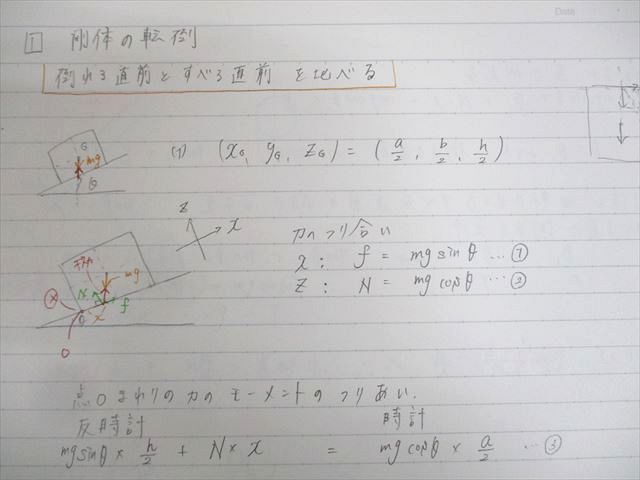 Date
1 剛体の転倒
倒れる直前とすべる直前 を比べる
G
mg
θ
(1) (xG, yG, zG) = (a/2, b/2, h/2)
z
x
力のつり合い
x : f = mg sinθ … ①
z : N = mg cosθ … ②
mg
N
f
x
θ
O
点Oまわりの力のモーメントのつりあい.
反時計 時計
mg sinθ × h/2 + N × x = mg cosθ × a/2 … ③